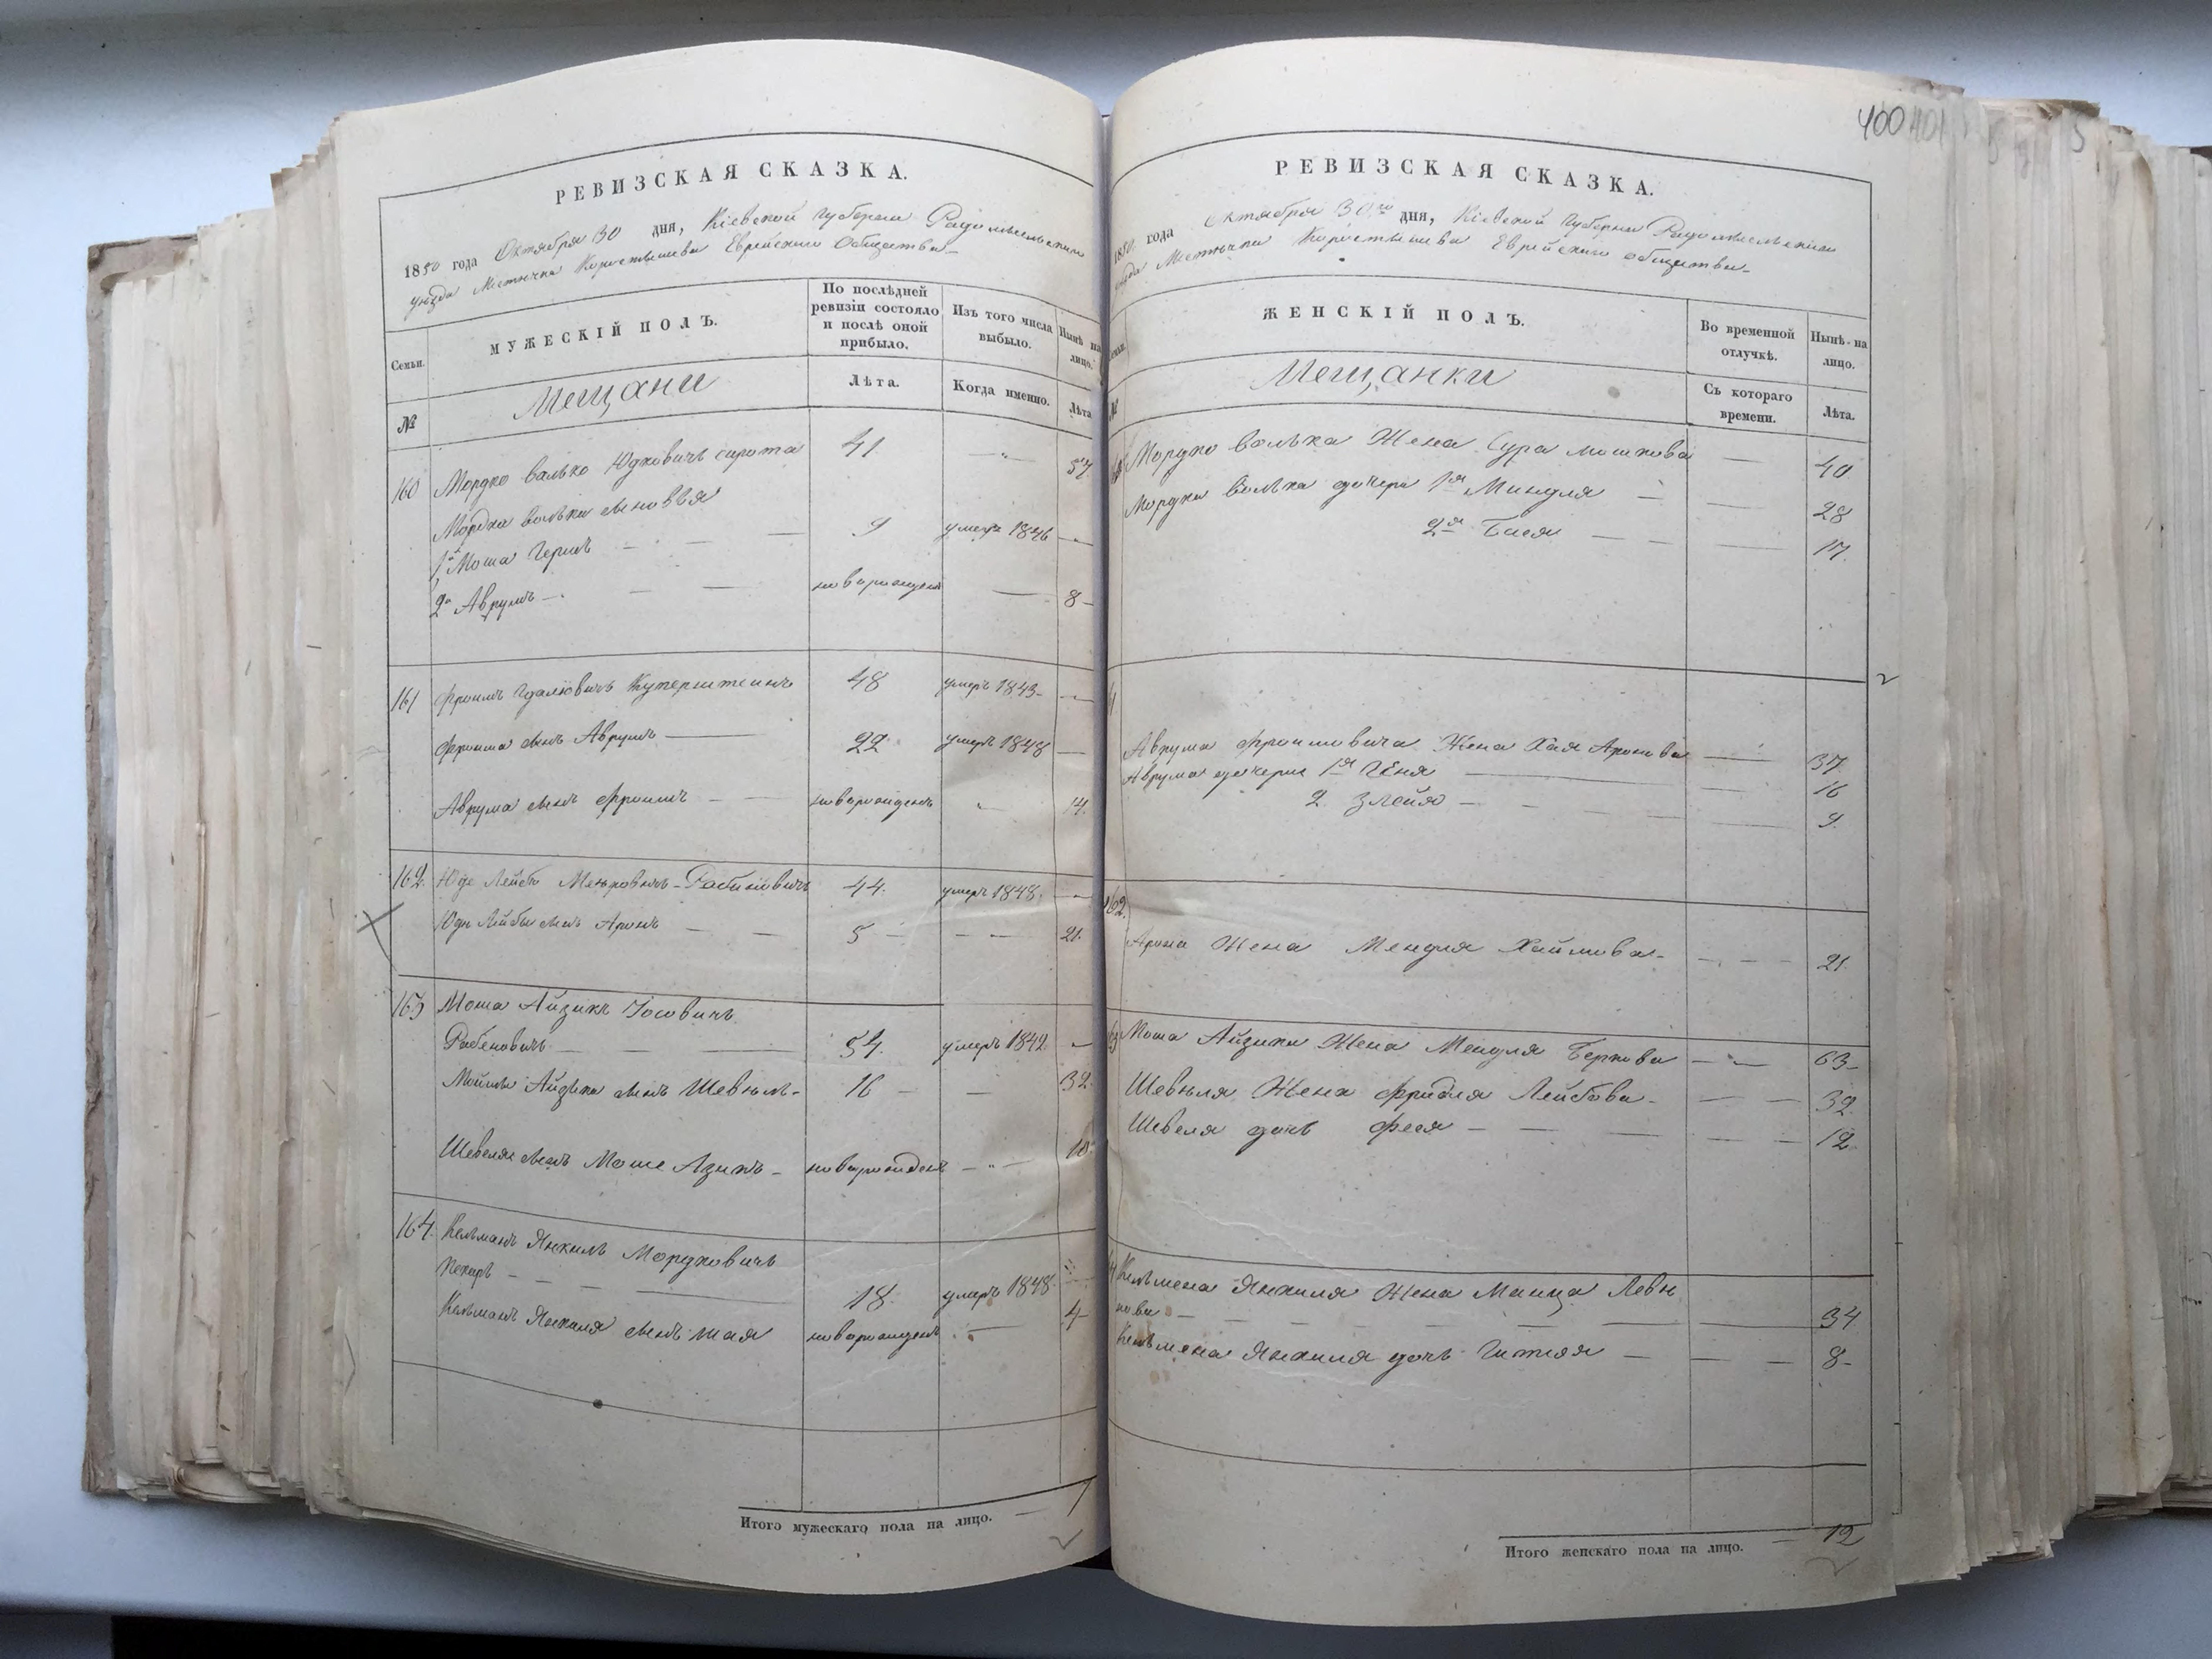 РЕВИЗСКАЯ СКАЗКА.
1850 года Октября 30 дня, Кіевской Губерніи Радомысльскаго
уезда Местечка Коростышева Еврейскаго Общества
Семьи.
МУЖЕСКІЙ ПОЛЪ.
По послѣдней ревизіи состояло и послѣ оной прибыло.
Изъ того числа выбыло.
Нынѣ на лицо.
№
Мещани
Лѣта.
Когда именно.
Лѣта
160 Мордко Валько Юдковичъ сирота 41 57
Мордка Волька сыновья
1й Моша Гершъ 9 умеръ 1846
2й Аврумъ новорожденъ 8
161 Фроимъ Кутерштеинъ 48 умеръ 1843
Фроима сынъ Аврумъ 22 умеръ 1848
Аврума сынъ Фроимъ новорожденъ 14
162 Юде Лейба Меировичъ Рабиновичъ 44 умеръ 1848
Юди Лейбы сынъ Аронъ 5 21
163 Моша Айзикъ Іосовичъ
Рабеновичъ 54 умеръ 1842
Айзика сынъ Шевель 16 32
Шевеля сынъ Моше Азикъ новорожденъ 10
164 Кельманъ Янкиль Мордковичъ
Пекаръ 18 умеръ 1848
Кельманъ Янкиля сынъ Шая новорожденъ 4
Итого мужескаго пола на лицо. 7
400 401
РЕВИЗСКАЯ СКАЗКА.
1850 года Октября 30го дня, Кіевской Губерніи Радомысльскаго
уезда Местечка Коростышева Еврейскаго общества
ЖЕНСКІЙ ПОЛЪ.
Во временной отлучкѣ.
Нынѣ на лицо.
№
Мещанки
Съ котораго времени.
Лѣта.
Мордко Волька Жена Сура Мошкова 40
Мордка Волька дочери 1я Миндля 28
2я Бася 17
Аврума Фроимовича Жена Хая Аронова 37
Аврума дочери 1я Геня 16
2 Злейя 9
162
Арона Жена Мендля Хаймова 21
Моша Айзика Жена Мендля Беркова 63
Шевеля Жена Фридля Лейбова 32
Шевеля дочь Фейя 12
Кельмена Янкиля Жена Маица Левн
кова 34
Кельмена Янкиля дочь Гитля 8
Итого женскаго пола на лицо. 12